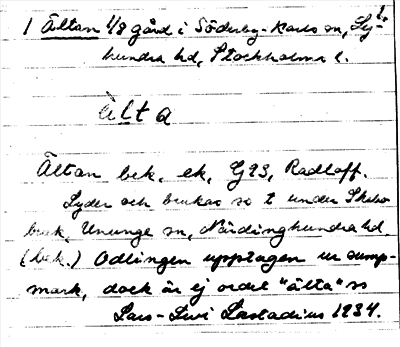 1 Ältan 1/8 gård i Söderby-Karls sn, Lyhundra hd, Stockholms l.
älta
Ältan bek, ek, G93, Radloff.
Lyder och brukas so t under Skebo
bruk, Ununge sn, Närdinghundra hd.
(bek.) Odlingen upptagen ur sump-
mark, dock är ej ordet "älta" so
Lars-Levi Læstadius 1934.